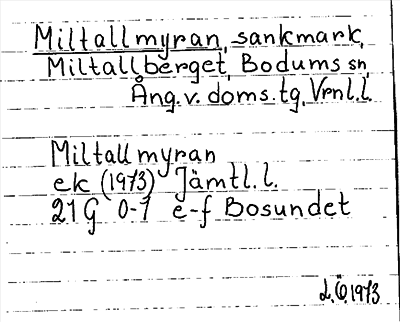 Miltallmyran, sankmark,
Miltallberget, Bodums sn,
Ång.v. doms.tg, Vrnl.l.
Miltallmyran
ek (1973) Jämtl.l.
21G 0-1 e-f Bosundet
L.Ö. 1973